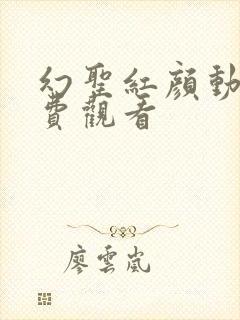 幻聖紅顔動
費觀看
廖雲嵐